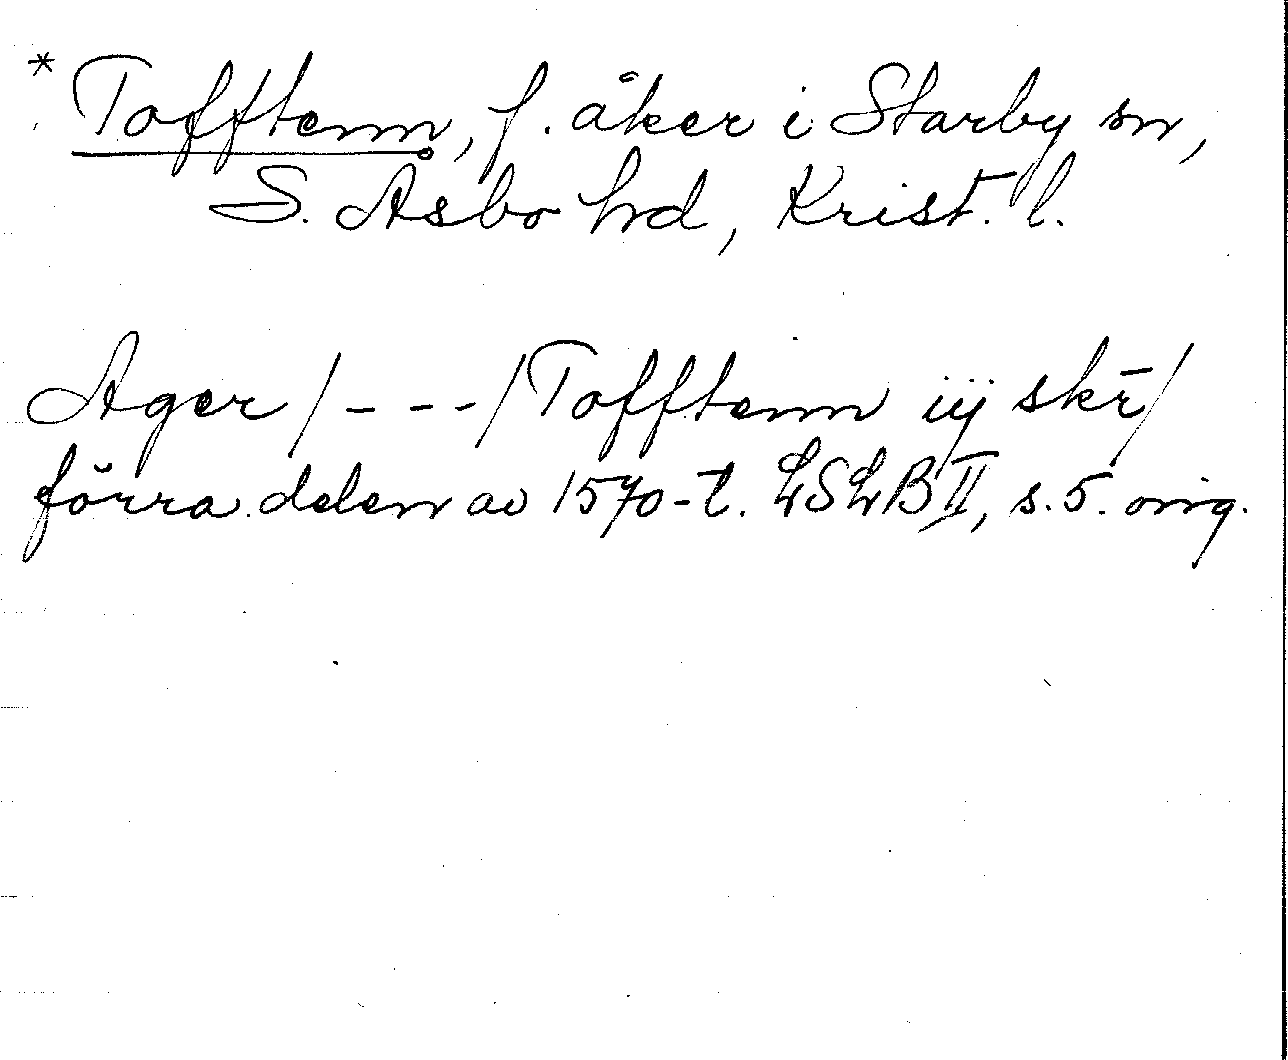 * Tofftenn, f. åker i Starby sn,
S. Åsbo hrd, Krist. l.
Ager /---/ Tofftenn iij skr̄/
förra delen av 1570-t. LSLB II, s. 5. orig.